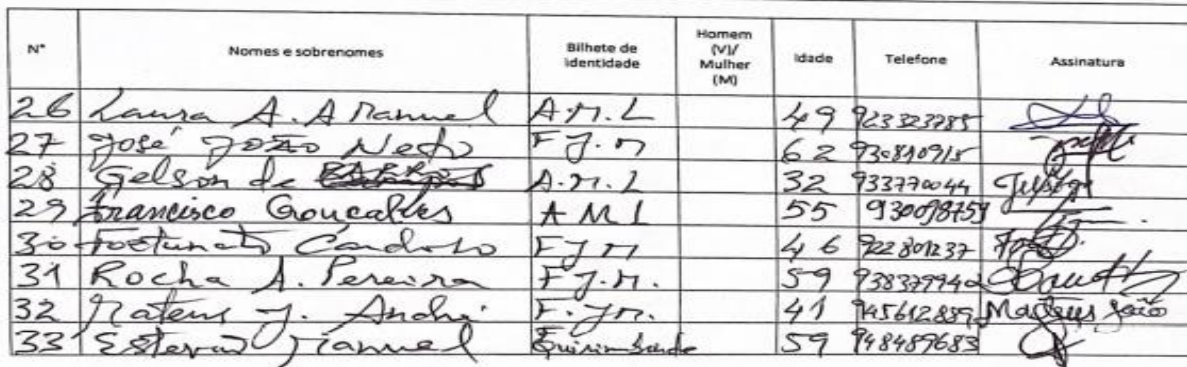 N° Nomes e sobrenomes Bilhete de identidade Homem (V)/ Mulher (M) Idade Telefone Assinatura
26 Laura A. A Manuel A.M.L 49 923323785
27 José João Neto F J. M 62 930810915
28 Gelson de A.M.L 32 933770044
29 Francisco Goncalves A M L 55 930098759
30 Fortunato Cardoso F J M 46 922801237
31 Rocha A. Pereira F J.M. 59 938379942
32 Mateus J. André F. J M. 41 945612889 Mateus João
33 Estevão Manuel 59 948489683